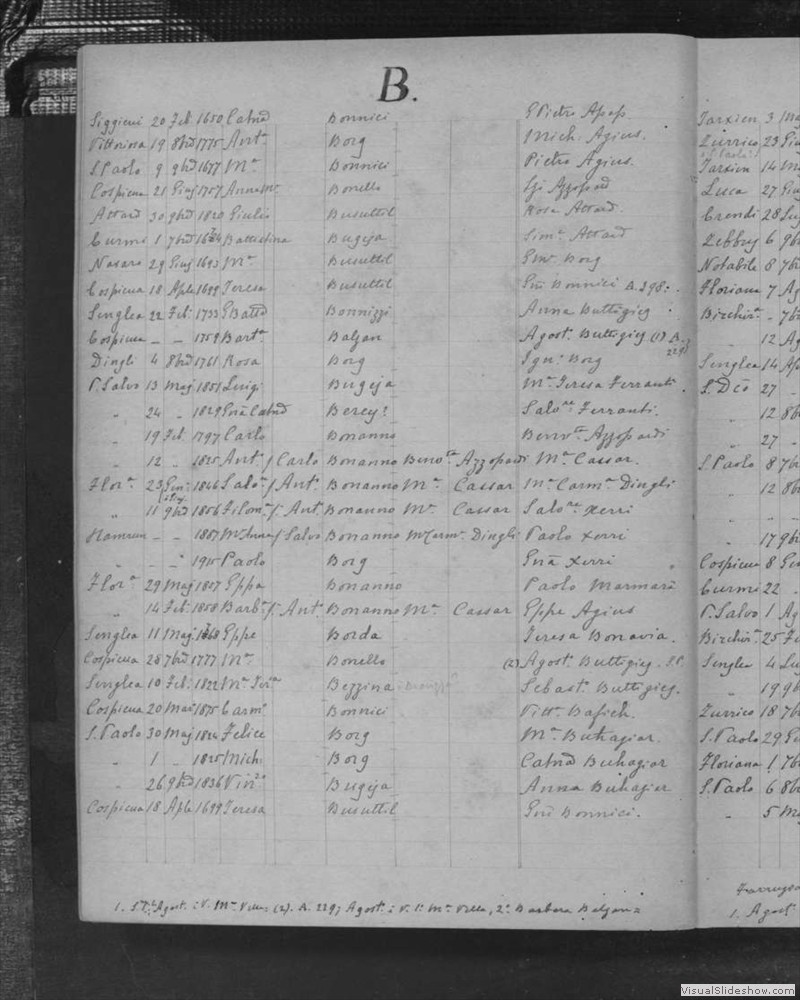 B.
Siggieui 20 Feb. 1650 Catnd Bonnici GPietro Apap.
Vittoriosa 19 8bre 1775 Ant. Borg Mich. Agius.
S. Paolo 9 9bre 1677 Ma Bonnici Pietro Agius.
Cospicua 21 Giug 1707 Anna Ma Bonello Azzopard
Attard 30 9bre 1820 Giulio Busuttil Rosa Attard.
Curmi 1 7bre Battistina Bugeja Sima Attard
Naxaro 29 Giug 1693 Ma Busuttil Em. Borg
Cospicua 18 Aple 1699 Teresa Busuttil Em. Bonnici A. 298.
Senglea 22 Feb. 1733 GBatta Bonnizzi Anna Buttigieg
Cospicua - - 1759 Bart. Baljan Agost. Buttigieg (1) A. 229
Dingli 4 8bre 1761 Rosa Borg Ign. Borg
P. Salvo 13 Mag. 1851 Luigi Bugeja Ma Teresa Ferranti.
" 24 " 1829 Catnd Bercy? Salore Ferranti.
" 19 Feb. 1797 Carlo Bonanno Benvta Azzopardi
" 12 " 1825 Ant. / Carlo Bonanno Benvta Azzopardi Ma Cassar.
Flora 23 Gin. 1846 Salo. / Ant. Bonanno Ma Cassar Ma Carma Dingli
" 11 9bre 1856 Filoma / Ant. Bonanno Ma Cassar Salore Xerri
Hamrun - - 1887 Ma Anna / Salvo Bonanno Ma Carma Dingli Paolo Xerri
" - " 1915 Paolo Borg Xerri "
Flora 29 Mag 1807 Gppa Bonanno Paolo Marmarà
" 14 Feb. 1858 Barba / Ant. Bonanno Ma Cassar Gppe Agius
Senglea 11 Mag. 1768 Gppe Borda Teresa Bonavia.
Cospicua 28 7bre 1777 Ma Bonello (2) Agost. Buttigieg.
Senglea 10 Feb. 1822 Ma Bezzina Sebast. Buttigieg.
Cospicua 20 Mar. 1875 Carm. Bonnici Vitt. Bajich.
S. Paolo 30 Mag 1824 Felice Borg Ma Buhagiar.
" 1 " 1825 Mich. Borg Catnd Buhagiar
" 26 9bre 1836 Vinc. Bugeja Anna Buhagier
Cospicua 18 Aple 1699 Teresa Busuttil Bonnici.
1. Agost. : V. Ma Vella (2). A. 229; Agost. : V. 1a Ma Vella, 2a Barbara Baljan =
Tarxien 3
Zurrico 23 Giu
(S. Paolo?)
Tarxien 14 M
Luca 27 Giu
Crendi 28 Lug
Zebbug 6 9b
Notabile 8 7b
Floriana 7 Ag
Birchir. - 7b
" 12 Ag
Senglea 14 Ap
S. Dco 27 "
" 12 8b
" 27 "
S. Paolo 8 7b
" 12 8b
" " "
" 17 9b
Cospicua 8 Ge
Curmi 22 "
P. Salvo 1 Ag
Birchir. 25 Fe
Senglea 4 Lug
" 19 9b
Zurrico 18 7b
S. Paolo 29 Gi
Floriana 1 7b
S. Paolo 6 8b
" 5 Ma
Farrugia
1. Agost.
VisualSlideshow.com